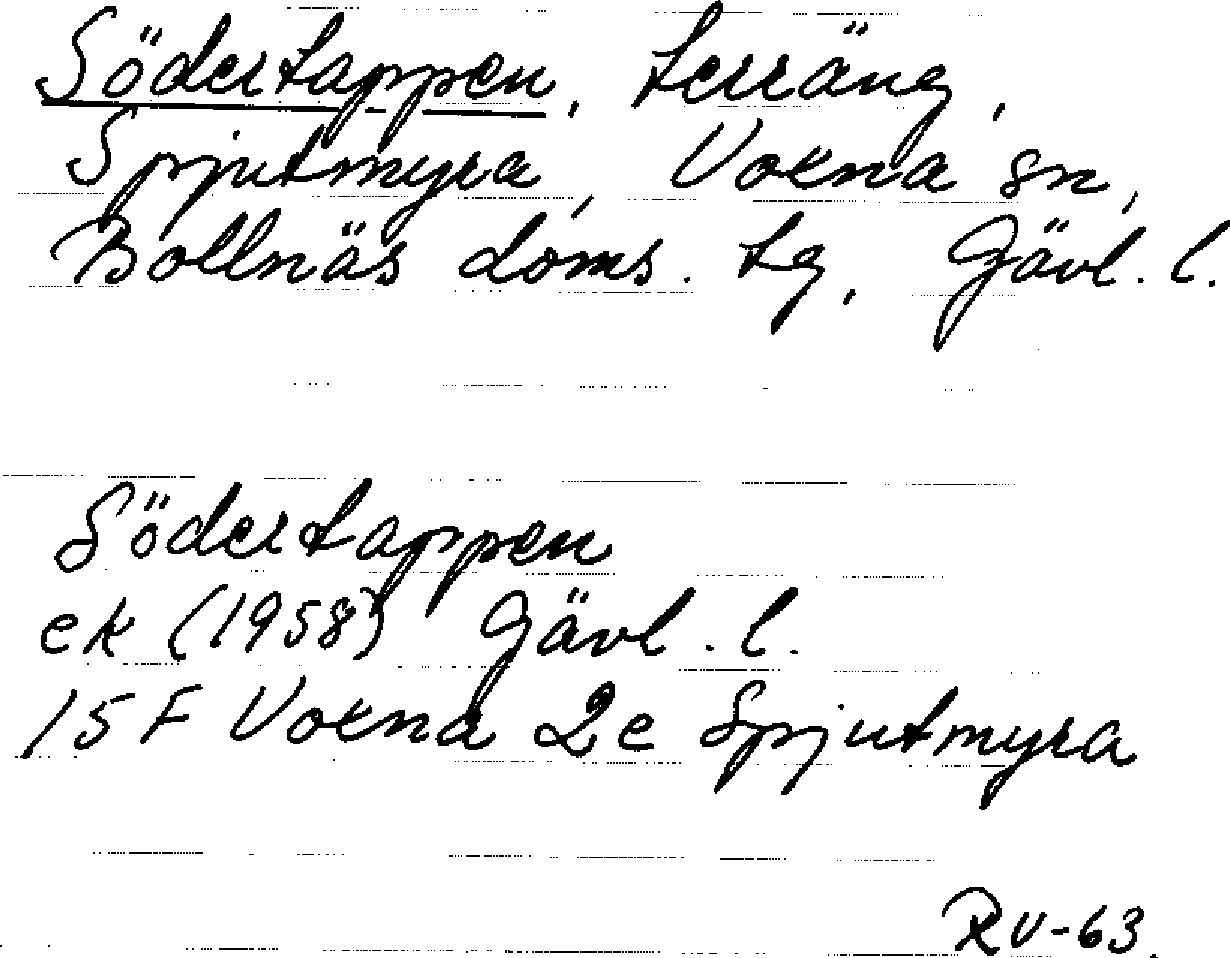 Södertappen, terräng,
Spjutmyra, Voxna sn,
Bollnäs doms. tg, Gävl. l.
Södertappen
ek (1958) Gävl. l.
15 F Voxna 2e Spjutmyra
RV-63.